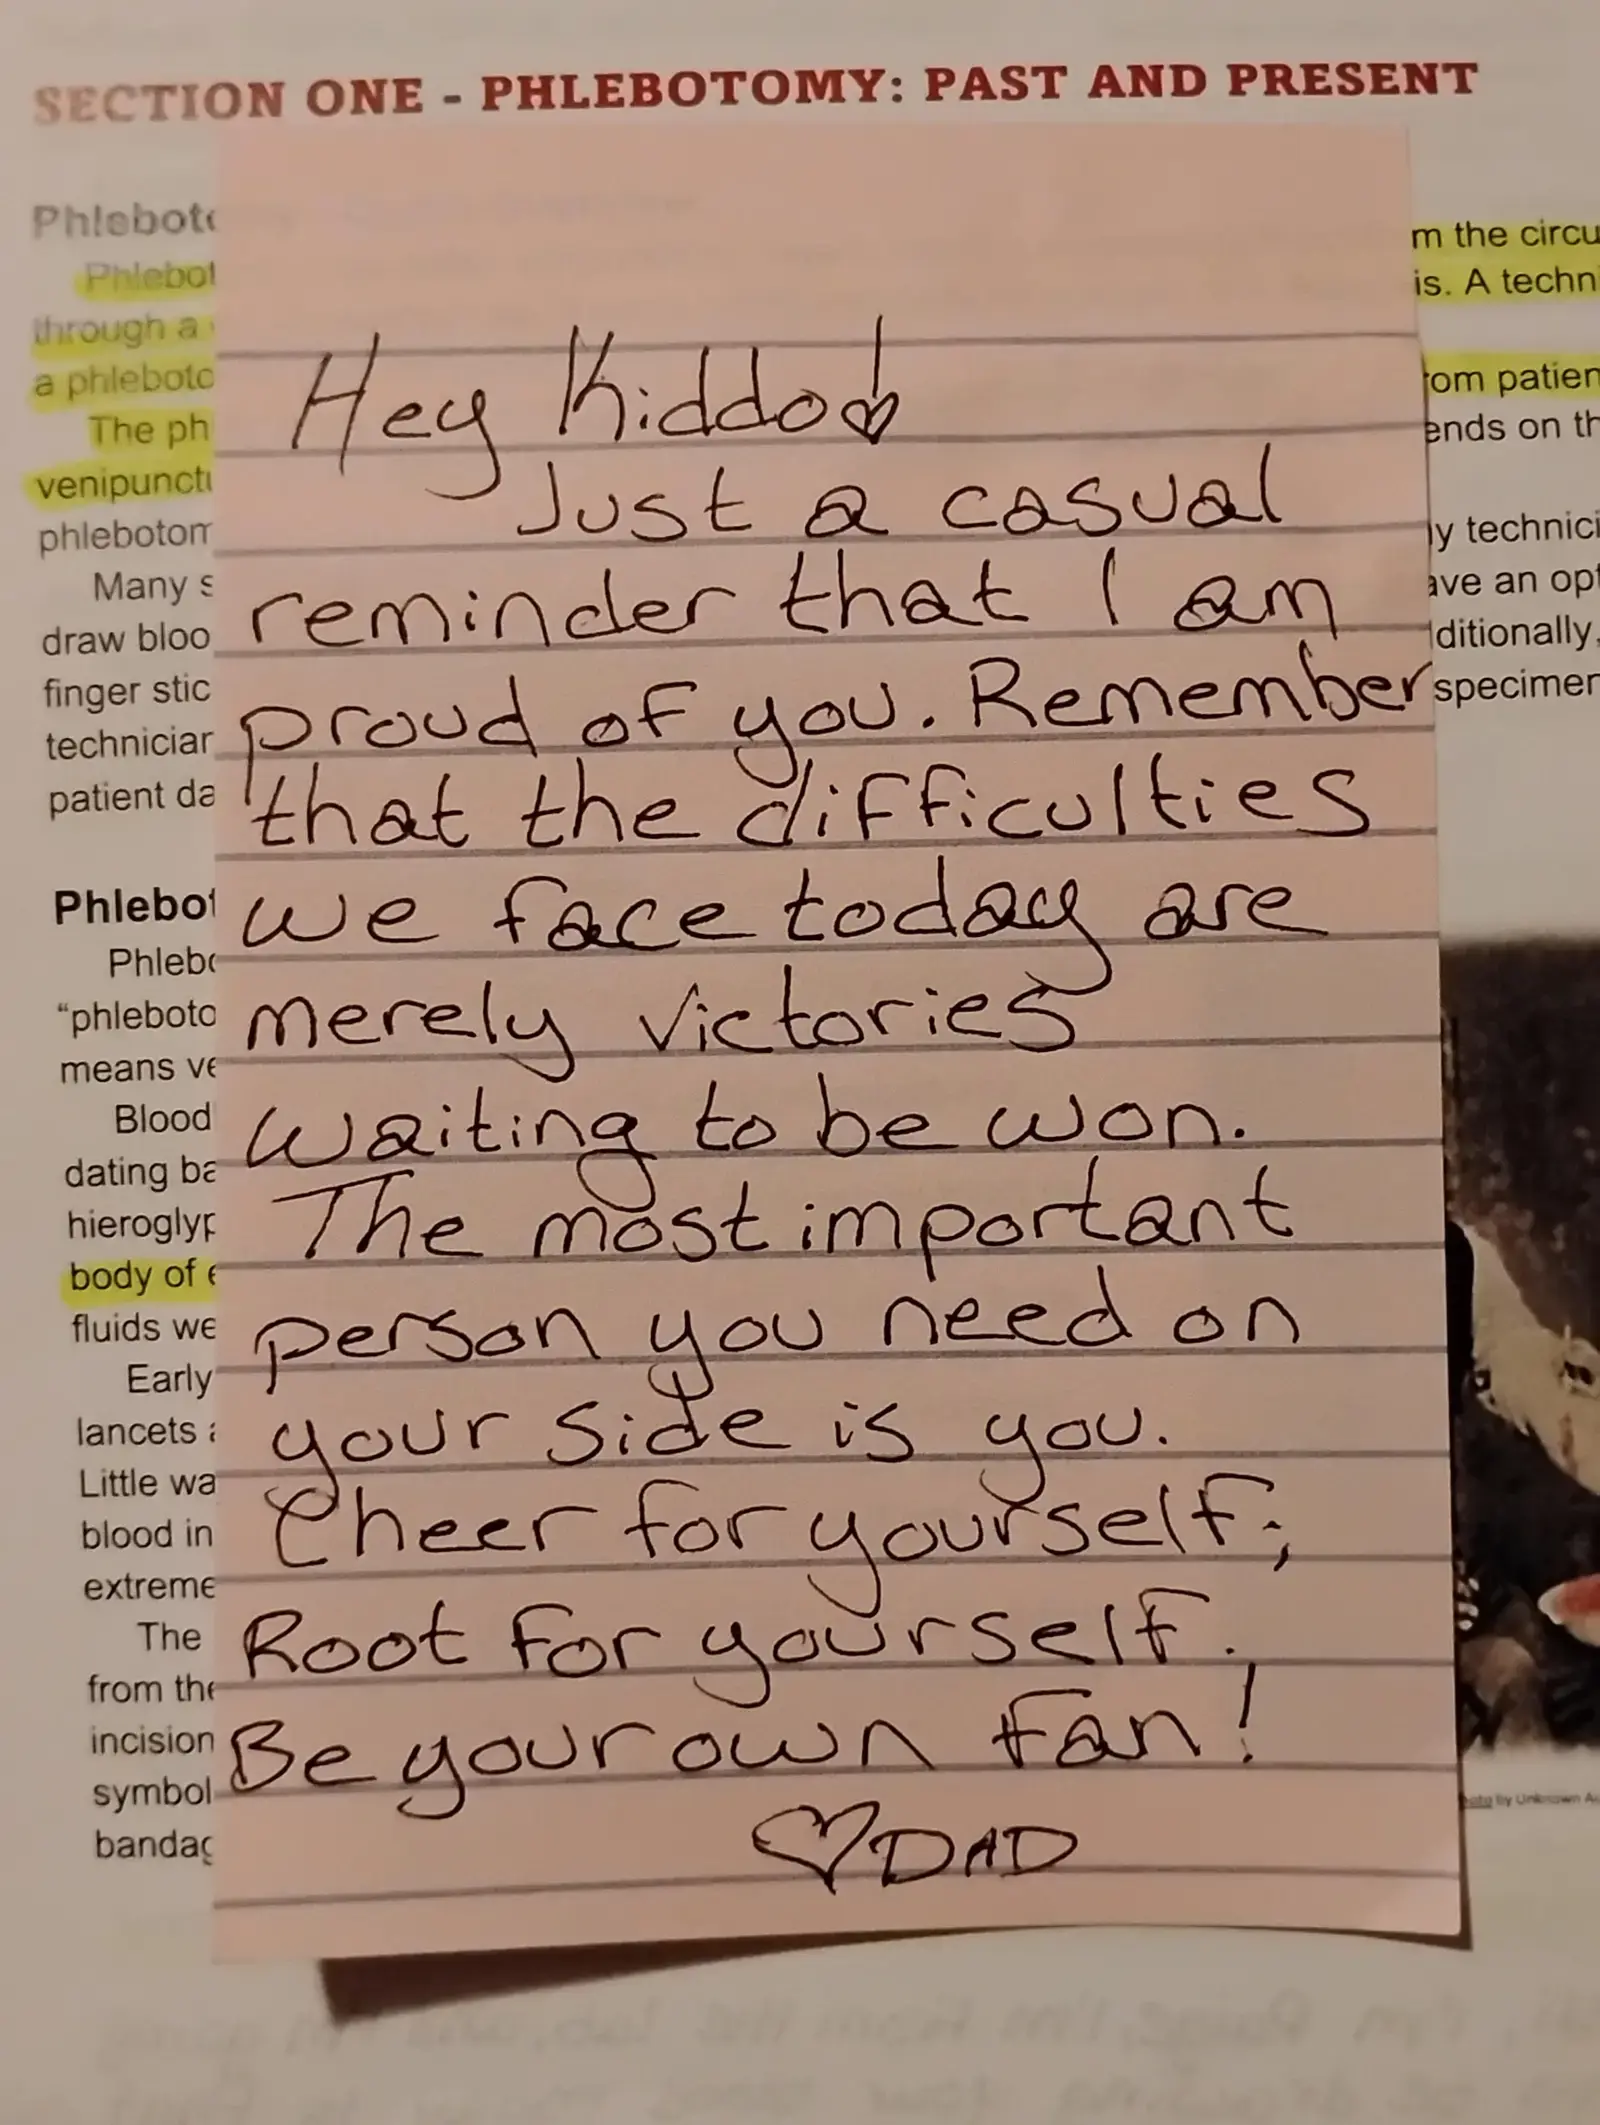 SECTION ONE - PHLEBOTOMY: PAST AND PRESENT
Phleboto
Phlebot
m the circu
through a
is. A techni
a phleboto
om patien
The ph
ends on th
venipunctu
phlebotom
y technici
Many s
ave an opt
draw bloo
ditionally,
finger stic
specimen
technician
patient da
Hey Kiddo!
Just a casual
reminder that I am
proud of you. Remember
that the difficulties
we face today are
merely victories
waiting to be won.
The most important
person you need on
your side is you.
Cheer for yourself;
Root for yourself.
Be your own fan!
♡ DAD
Phlebot
Phlebo
"phleboto
means ve
Blood
dating ba
hieroglyp
body of e
fluids we
Early
lancets a
Little wa
blood in
extreme
The
from the
incision
symbol
bandag
by Unknown Au